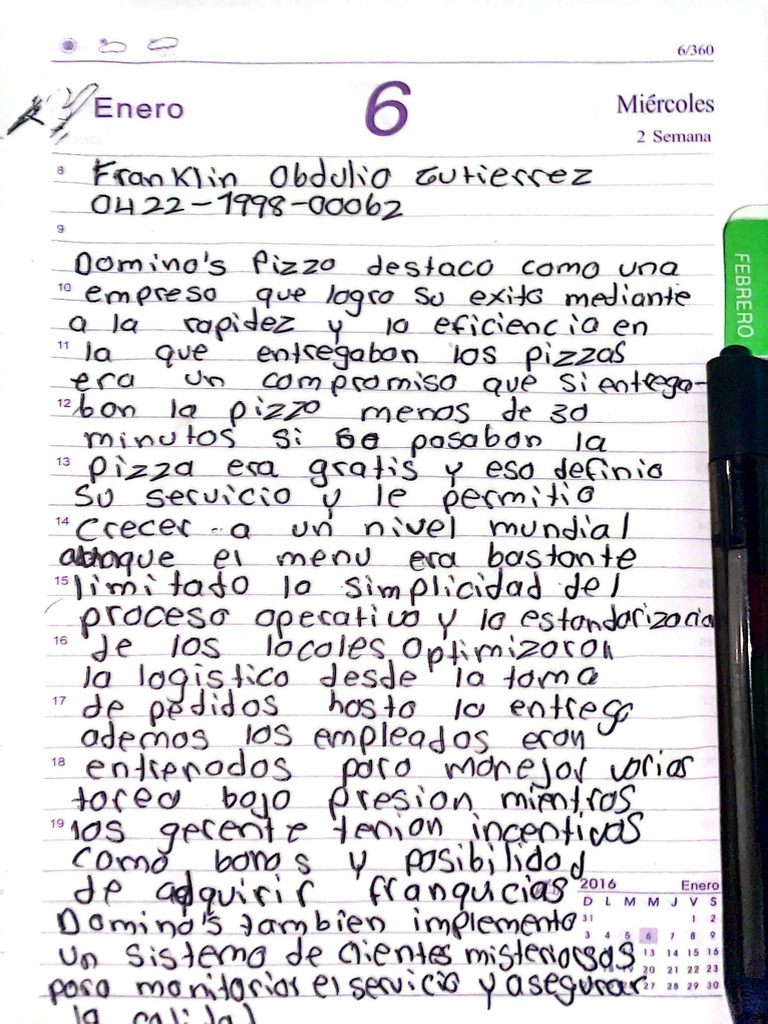 6/360
Enero 6 Miércoles
2 Semana
8 Franklin Obdulio Gutierrez
0422-1998-00062
9
Domino's Pizza destaco como una
10 empresa que logro su exito mediante
a la rapidez y la eficiencia en
11 la que entregaban los pizzas
era un compromiso que si entrega-
12 ban la pizza menos de 30
minutos si pasaban la
13 pizza era gratis y eso definio
su servicio y le permitio
14 crecer a un nivel mundial
aunque el menu era bastante
15 limitado la simplicidad del
proceso operativo y la estandarizacion
16 de los locales optimizaron
la logistica desde la toma
17 de pedidos hasta la entrega
ademas los empleados eran
18 entrenados para manejar varias
tarea bajo presion mientras
19 los gerente tenian incentivas
como bonos y posibilidad
de adquirir franqucias
Domino's tambien implemento
un sistema de clientes misteriosos
para monitorias el servicio y asegurar
la calidad
FEBRERO
2016 Enero
D L M M J V S
31 1 2
3 4 5 6 7 8 9
13 14 15 16
20 21 22 23
27 28 29 30